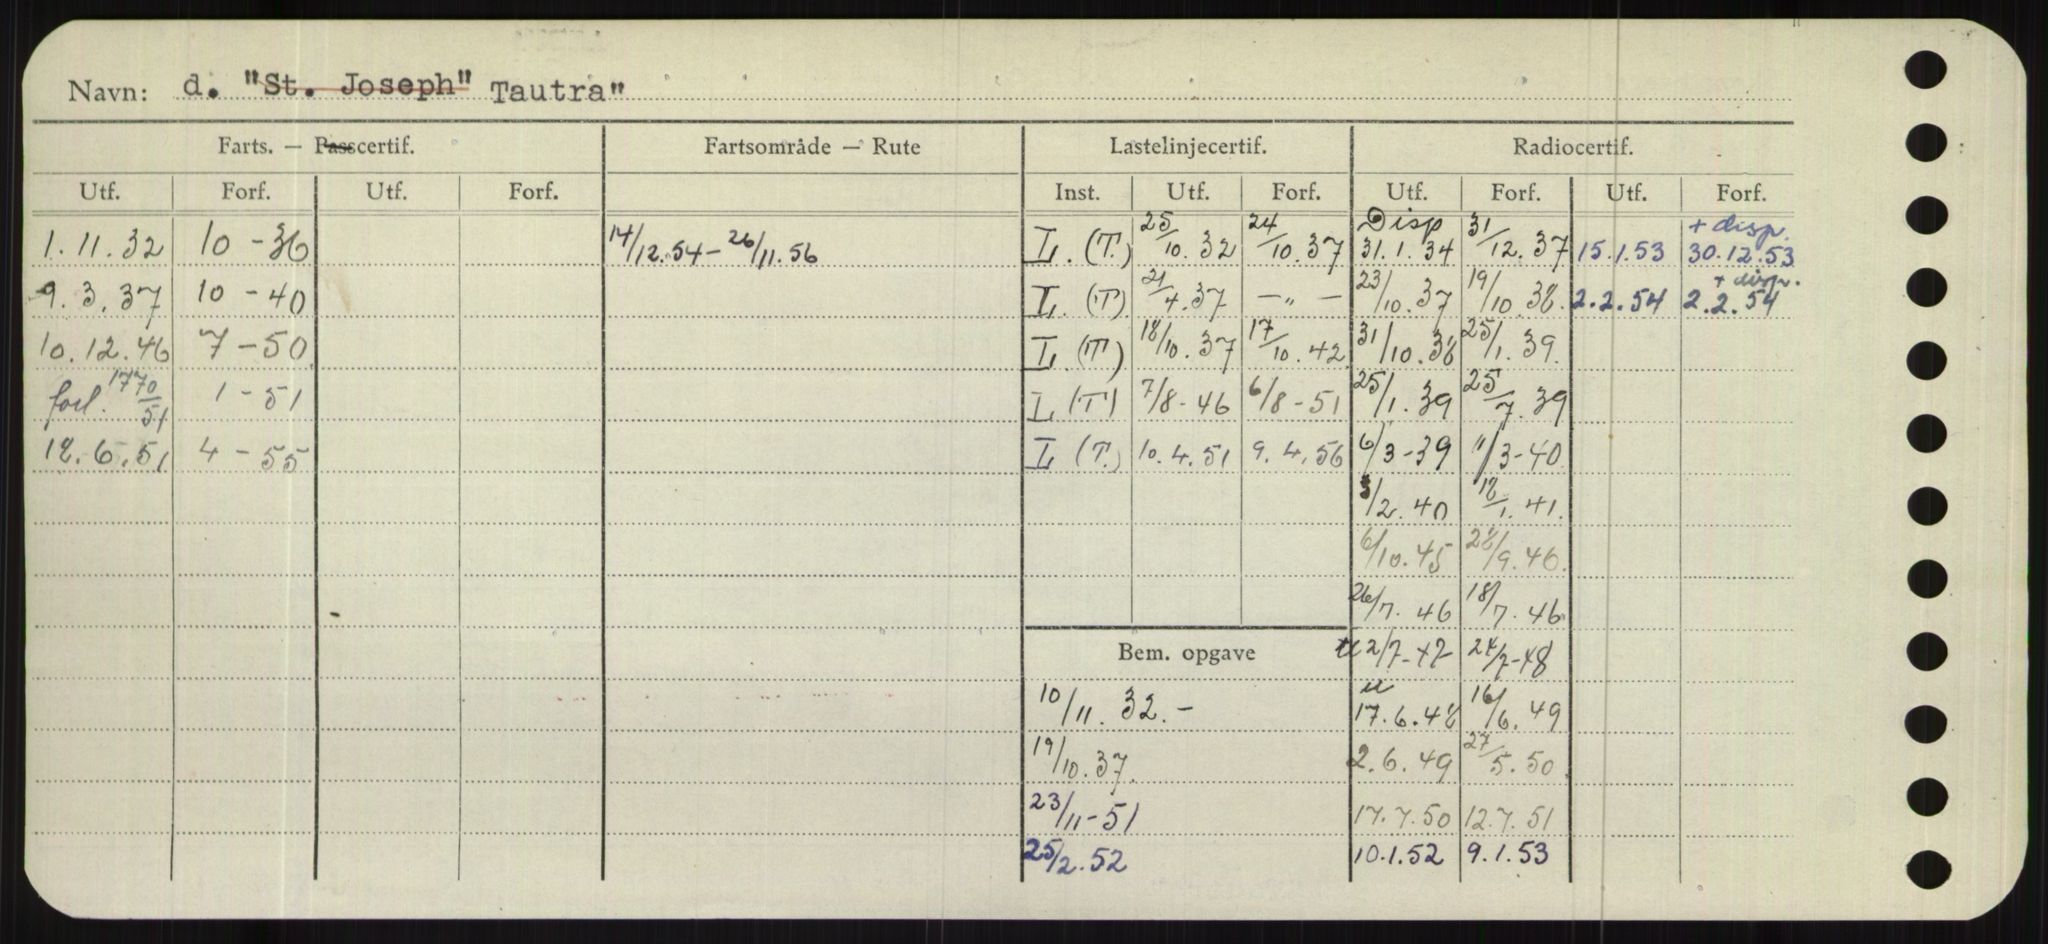 Navn: d. "St. Joseph" Tautra"
Farts. — Passcertif. Fartsområde — Rute Lastelinjecertif. Radiocertif.
Utf. Forf. Utf. Forf. Inst. Utf. Forf. Utf. Forf. Utf. Forf.
1.11.32 10-36 14/12.54-26/11.56 L. (T.) 25/10.32 24/10.37 Disp 31.1.34 31/12.37 15.1.53 + disp. 30.12.53
9.3.37 10-40 L. (T) 21/4.37 —„— 23/10.37 19/10.38. 2.2.54 + disp. 2.2.54
10.12.46 7-50 L. (T) 18/10.37 17/10.42 31/10.38 25/1.39.
forl. 1-51 L (T) 7/8-46 6/8-51 25/1.39 25/7.39
18.6.51 4-55 L (T.) 10.4.51 9.4.56 6/3-39 "/3-40
/2.40 18/1.41.
6/10.45 28/9.46.
26/7.46 18/7.46
Bem. opgave 2/7-47 24/7-48
10/11.32.- u 17.6.48 16/6.49
19/10.37. 2.6.49 27/5.50.
23/11-51 17.7.50 12.7.51
25/2.52 10.1.52 9.1.53